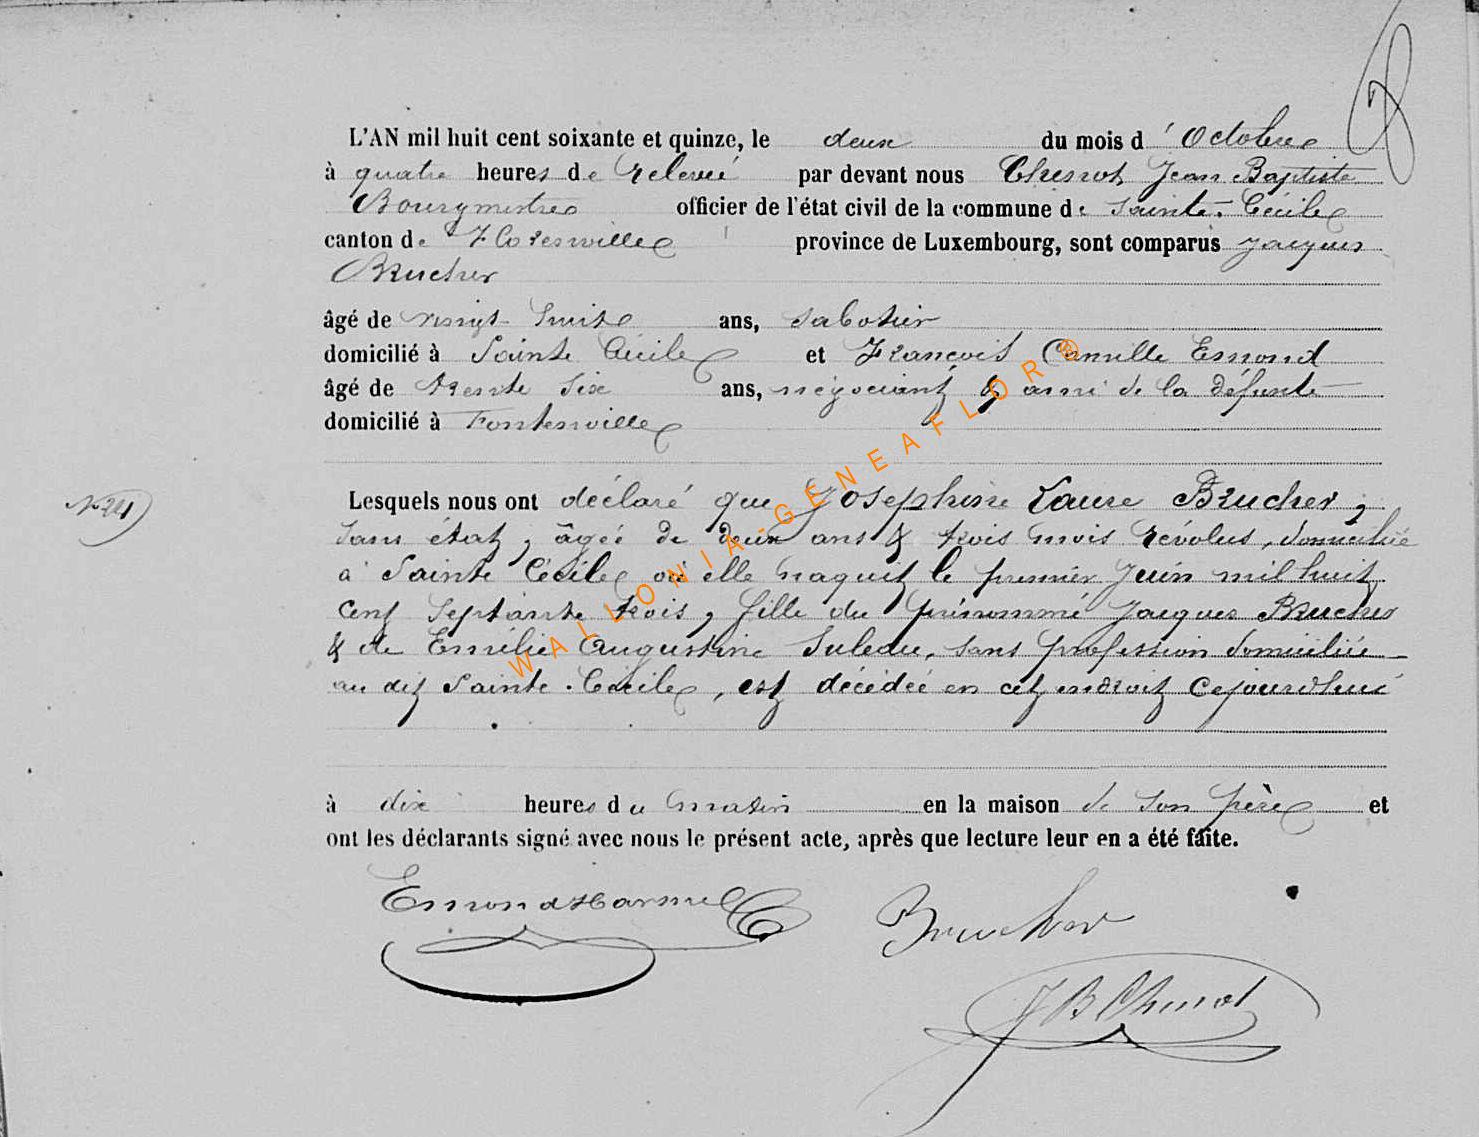 L'AN mil huit cent soixante et quinze, le deux du mois d'Octobre
à quatre heures de Relevée par devant nous Chenot Jean Baptiste
Bourgmestre officier de l'état civil de la commune de Sainte-Cécile
canton de Florenville province de Luxembourg, sont comparus Jacques
Brucher
âgé de vingt huit ans, sabotier
domicilié à Sainte Cécile et François Camille Emond
âgé de trente six ans, négociant & ami de la défunte
domicilié à Fontenoille
Lesquels nous ont déclaré que Josephine Laure Brucher,
N° 21
sans état, âgée de deux ans & trois mois révolus, domiciliée
à Sainte Cécile où elle naquit le premier Juin mil huit
cent septante trois, fille du prénommé Jacques Brucher
& de Emélie Augustine Suleau, sans profession domiciliée
au dit Sainte-Cécile, est décédée en cet endroit cejourdhui
à dix heures du matin en la maison de son père et
ont les déclarants signé avec nous le présent acte, après que lecture leur en a été faite.
Emond Harmel Brucher
JB Chenot
WALLONIA-GENEAFLOR®